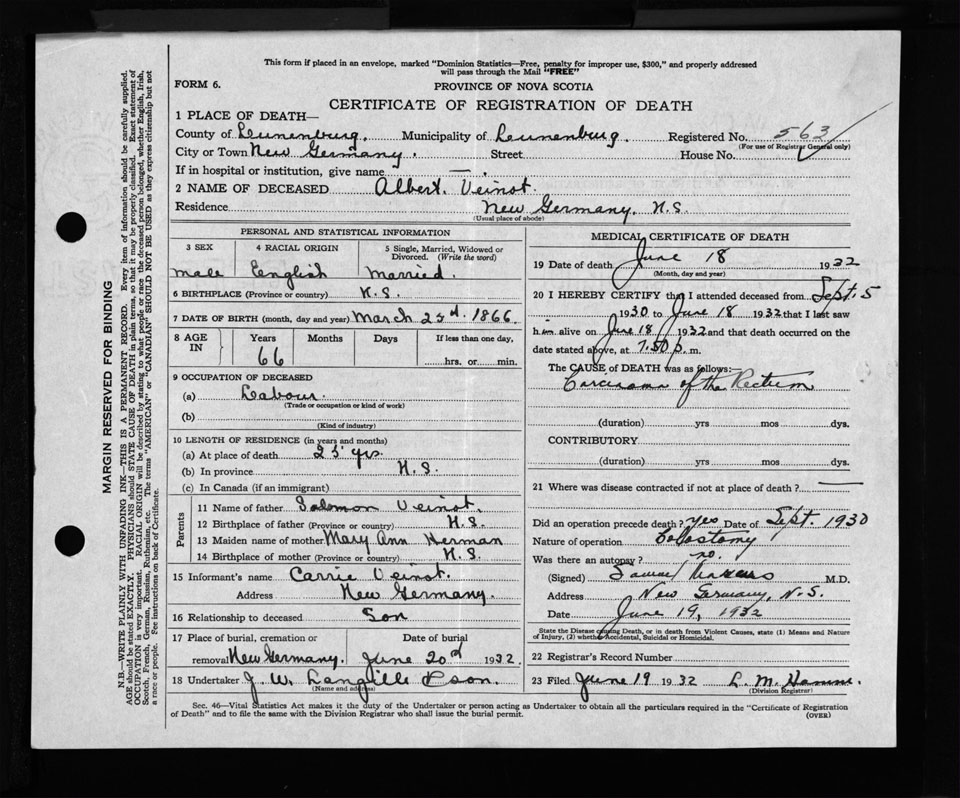 This form if placed in an envelope, marked "Dominion Statistics—Free, penalty for improper use, $300," and properly addressed
will pass through the Mail "FREE"
FORM 6.
PROVINCE OF NOVA SCOTIA
CERTIFICATE OF REGISTRATION OF DEATH
1 PLACE OF DEATH—
County of Lunenburg. Municipality of Lunenburg. Registered No. 563
(For use of Registrar General only)
City or Town New Germany. Street House No.
If in hospital or institution, give name — .
2 NAME OF DECEASED Albert. Veinot.
Residence New Germany, N.S.
(Usual place of abode)
PERSONAL AND STATISTICAL INFORMATION
3 SEX 4 RACIAL ORIGIN 5 Single, Married, Widowed or Divorced. (Write the word)
male English Married.
6 BIRTHPLACE (Province or country) N.S.
7 DATE OF BIRTH (month, day and year) March 23d. 1866.
8 AGE IN Years Months Days If less than one day,
66 hrs. or min.
9 OCCUPATION OF DECEASED
(a) Labour.
(Trade or occupation or kind of work)
(b)
(Kind of industry)
10 LENGTH OF RESIDENCE (in years and months)
(a) At place of death 25 yrs.
(b) In province N.S.
(c) In Canada (if an immigrant)
Parents
11 Name of father Salomon Veinot.
12 Birthplace of father (Province or country) N.S.
13 Maiden name of mother Mary Ann Herman
14 Birthplace of mother (Province or country) N.S.
15 Informant's name Carrie Veinot.
Address New Germany.
16 Relationship to deceased Son
17 Place of burial, cremation or removal New Germany. Date of burial June 20d 1932.
18 Undertaker J. W. Langille & son.
(Name and address)
MEDICAL CERTIFICATE OF DEATH
19 Date of death June 18 1932
(Month, day and year)
20 I HEREBY CERTIFY that I attended deceased from Sept. 5
1930 to June 18 1932 that I last saw
him alive on June 18 1932 and that death occurred on
date stated above, at 7.50 p. m.
The CAUSE of DEATH was as follows:—
Carcinoma of the Rectum
(duration) yrs mos dys.
CONTRIBUTORY
(duration) yrs. mos. dys.
21 Where was disease contracted if not at place of death? —
Did an operation precede death? yes Date of Sept. 1930
Nature of operation Colostomy
Was there an autopsy? no.
(Signed) M.D.
Address New Germany, N.S.
Date June 19, 1932
State the Disease causing Death, or in death from Violent Causes, state (1) Means and Nature
of Injury, (2) whether Accidental, Suicidal or Homicidal.
22 Registrar's Record Number
23 Filed June 19 1932 L. M.
(Division Registrar)
Sec. 46—Vital Statistics Act makes it the duty of the Undertaker or person acting as Undertaker to obtain all the particulars required in the "Certificate of Registration
of Death" and to file the same with the Division Registrar who shall issue the burial permit.
(OVER)
MARGIN RESERVED FOR BINDING
N.B.—WRITE PLAINLY WITH UNFADING INK—THIS IS A PERMANENT RECORD. Every item of information should be carefully supplied.
AGE should be stated EXACTLY. PHYSICIANS should STATE CAUSE OF DEATH in plain terms, so that it may be properly classified. Exact statement of
OCCUPATION is very important. RACIAL ORIGIN will be described by stating to what people or race the deceased person belonged, whether English, Irish,
Scotch, French, German, Russian, Ruthenian, etc. The terms "AMERICAN" or "CANADIAN" SHOULD NOT BE USED as they express citizenship but not
a race or people. See instructions on back of Certificate.